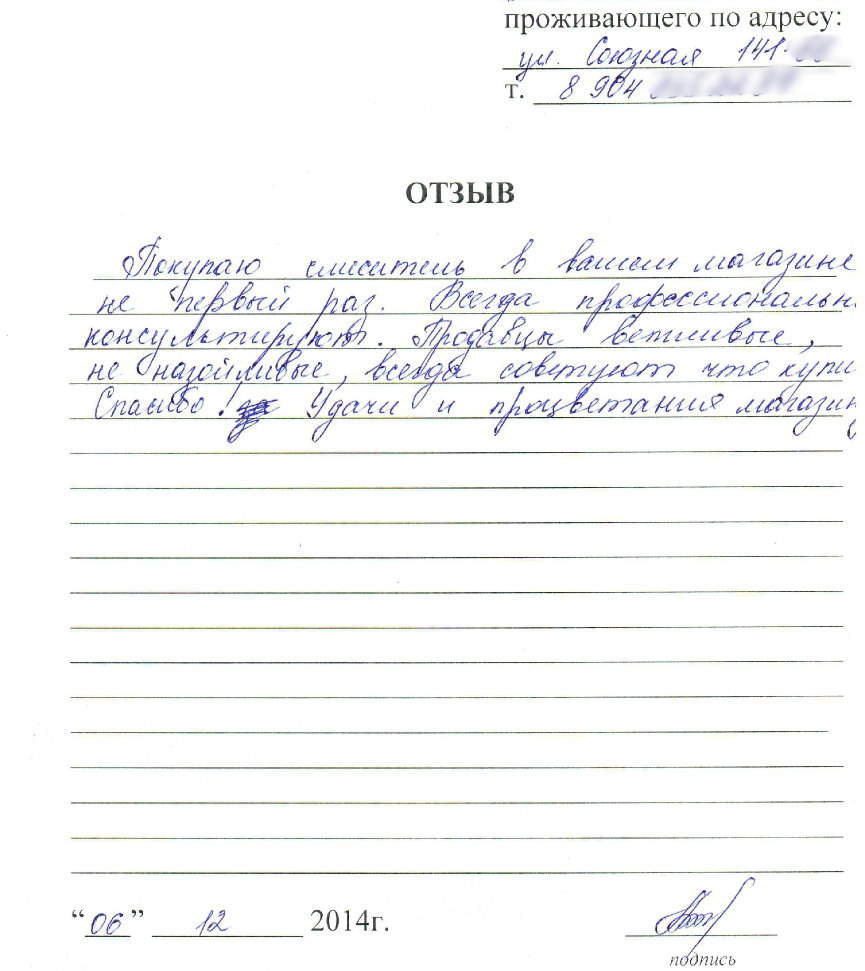 проживающего по адресу:
ул. Союзная 141.
т. 8 904
ОТЗЫВ
Покупаю смеситель в вашем магазине
не первый раз. Всегда профессиональн
консультируют. Продавцы ветливые,
не назойливые, всегда советуют что купи
Спасибо! Удачи и процветания магазину
“06” 12 2014г.
подпись